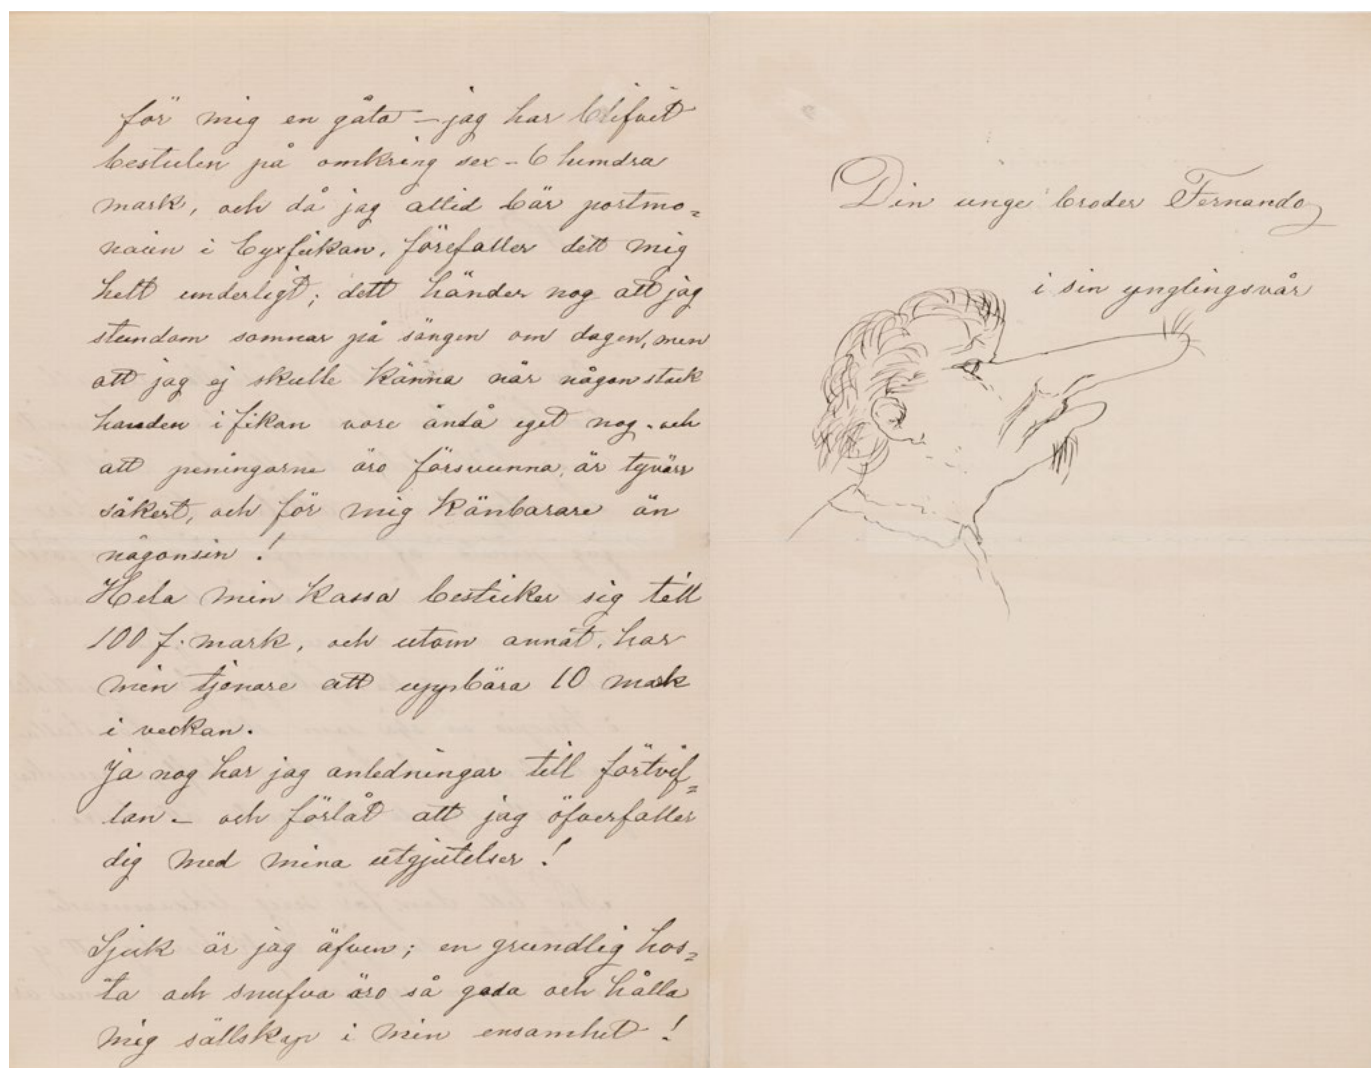 för mig en gåta – jag har blifvit
bestulen på omkring sex – 6 hundra
mark, och då jag altid bär portmo=
nain i byxfikan, förefaller dett mig
helt underligt; dett händer nog att jag
stundom somnar på sängen om dagen, men
att jag ej skulle känna när någon stack
handen i fikan vore ändå eget nog. och
att peningarne äro försvunna, är tyvärr
säkert, och för mig känbarare än
någonsin!
Hela min kassa bestiker sig till
100 f. mark, och utom annat, har
min tjenare att uppbära 10 mark
i veckan.
Ja nog har jag anledningar till förtvif=
lan – och förlåt att jag öfverfaller
dig med mina utgjutelser!
Sjuk är jag äfven; en grundlig hos=
ta och snufva äro så goda och hålla
mig sällskap i min ensamhet!
Din unge broder Fernando
i sin ynglingsvår